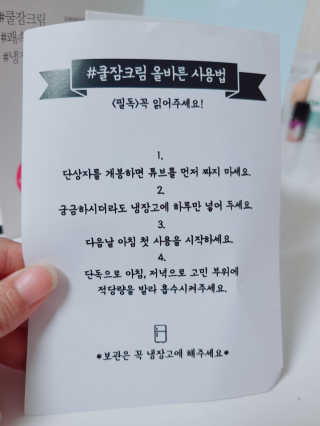 #쿨잠크림
#쾌
#냉
#쿨잠크림 올바른 사용법
<필독>꼭 읽어주세요!
1.
단상자를 개봉하면 튜브를 먼저 짜지 마세요.
2.
궁금하시더라도 냉장고에 하루만 넣어 두세요.
3.
다음날 아침 첫 사용을 시작하세요.
4.
단독으로 아침, 저녁으로 고민 부위에
적당량을 발라 흡수시켜주세요.
*보관은 꼭 냉장고에 해주세요*